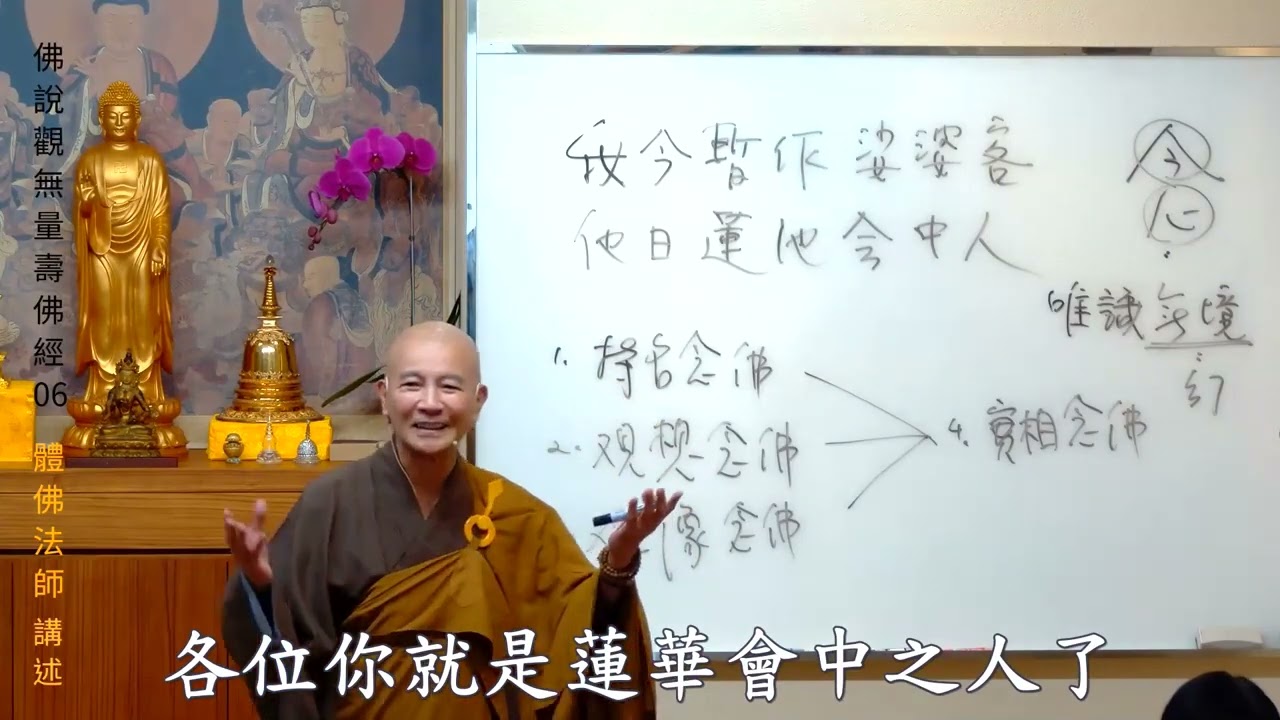 佛說觀無量壽佛經06 體佛法師 講述
我今暫作娑婆客
他日蓮池会中人
今
心
唯識無境
幻
1. 持名念佛
2. 观想念佛
像念佛
4. 實相念佛
各位你就是蓮華會中之人了